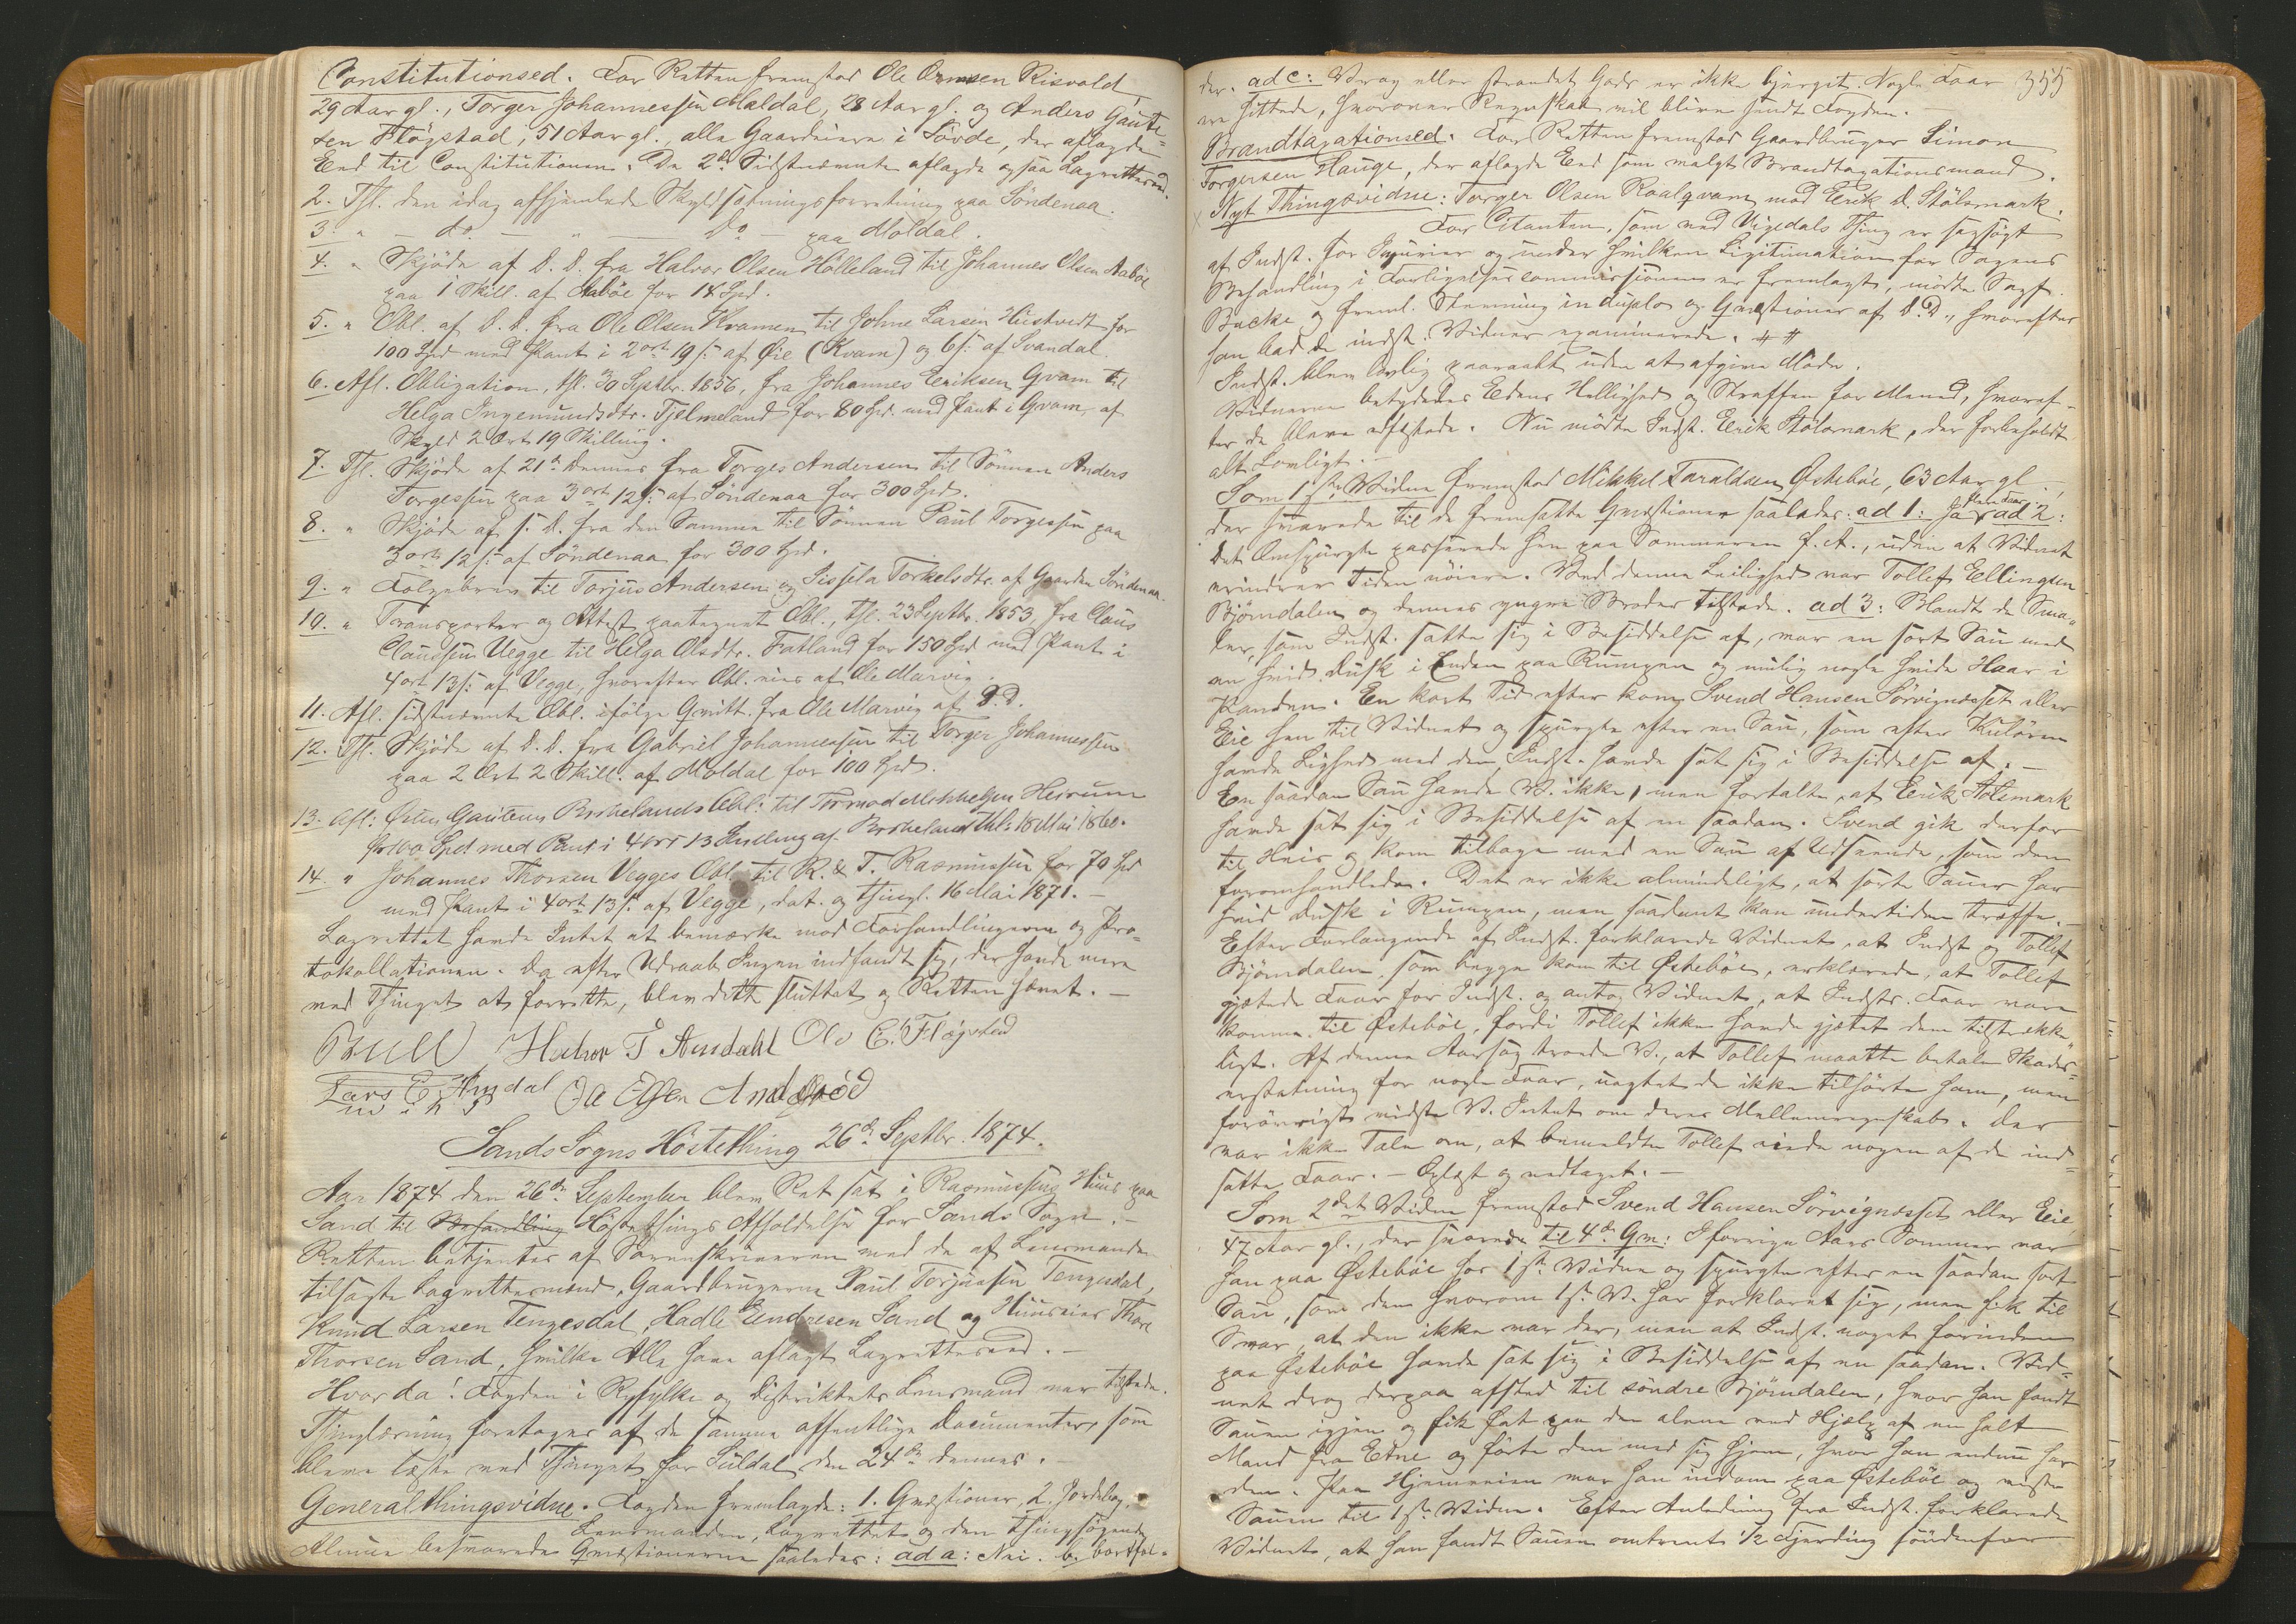 Constitutionsed. For Retten fremstod Ole Ormsen Risvold,
29 Aar gl., Torger Johannessen Maldal, 28 Aar gl. og Anders Gaute-
sen Fløgstad, 51 Aar gl. alle Gaardeiere i Sövde, der aflagde
Eed til Constitutionen. De 2de Sidstnævnte aflagde ogsaa Lagretteseed.
2. Thl. den idag afhjemlede Skyldsætningsforretning paa Söndenaa.
3. " — do. — " — Do — paa Moldal.
4. " Skjöde af D. D. fra Halvor Olsen Hölleland til Johannes Olsen Aaböe
paa 1 Skill. af Aaböe for 14 Spd.
5. " Obl. af D. D. fra Ole Olsen Kvamen til Johne Larsen Hustvedt for
100 Spd med Pant i 2 ort 19 s: af Øie (Kvam) og 6 s: af Svandal.
6. Afl. Obligation, thl. 30 Septbr. 1856, fra Johannes Eeriksen Qvam til
Helga Ingemundsdtr. Tjelmeland for 80 Spd. med Pant i Qvam, af
Skyld 2 Ort 19 Skilling.
7. Thl. Skjöde af 21de dennes fra Torges Andersen til Sönnen Anders
Torgessen paa 3 ort 12 s: af Söndenaa for 300 Spd.
8. " Skjöde af s. D. fra den Samme til Sönnen Paul Torgessen paa
3 ort 12 s: af Söndenaa for 300 Spd.
9. " Folgebrev til Torjus Andersen og Sissela Torkelsdtr. af Gaarden Söndenaa.
10. " Transporter og Attest paategnet Obl., thl. 23 Septbr. 1853, fra Claus
Claussen Vegge til Helga Olsdtr. Fatland for 150 Spd med Pant i
4 ort 13 s: af Vegge, hvorefter Obl. eies af Ole Marvig.
11. Afl. sidstnævnte Obl. ifölge Qvitt. fra Ole Marvig af D. D.
12. Thl. Skjöde af D. D. fra Gabriel Johannessen til Torger Johannessen
paa 2 Ort 2 Skill. af Moldal for 100 Spd.
13. Afl: Østen Gautesens Birkelands Obl: til Tormod Mikkelsen Heirum
for 100 Spd med Pant i 4 ort 13 Skilling af Birkeland thl: 18 Mai 1860.
14. " Johannes Thorsen Vegges Obl. til R. & T. Rasmussen for 70 Spd
med Pant i 4 ort 13 s: af Vegge, dat. og thingl. 16 Mai 1871. —
Lagrettet havde Intet at bemærke mod Forhandlingerne og Pro-
tokollationen. Da efter Udraab Ingen indfandt sig, der havde mere
ved Thinget at forrette, blev dette sluttet og Retten hævet. —
Bull Halvor T Amdahl Ole E. Fløgstad
Lars E. Amdal Ole Elsen Amdal
Sands Sogns Höstething 26de Septbr. 1874.
Aar 1874 den 26de September blev Ret sat i Rasmussens Huus paa
Sand til Behandling Höstethings Afholdelse for Sands Sogn. —
Retten betjentes af Sorenskriveren med de af Lensmanden
tilsagte Lagrettesmænd, Gaardbrugerne Paul Torjussen Tengesdal,
Knud Larsen Tengesdal, Hadle Endresen Sand og Huuseier Thore
Thorsen Sand, hvilke Alle have aflagt Lagretteseed. —
Hvorda! Fogden i Ryfylke og Distriktets Lensmand var tilstede.
Thinglæsning foretoges af de samme offentlige Documenter, som
bleve læste ved Thinget for Suldal den 24de dennes. —
Generalthingsvidne. Fogden fremlagde: 1. Qvæstioner, 2. Jordebog.
Lensmanden, Lagrettet og den thingsögende
Almue besvarede Qvæstionerne saaledes: ad a: Nei. b. bortfal-
355
der. ad c: Vrag eller strandet Gods er ikke bjerget. Nogle Faar
ere hittede, hvorover Regnskab vil blive sendt Fogden.
Brandtaxationsed. For Retten fremstod Gaardbruger Simon
Torgersen Hauge, der aflagde Eed som valgt Brandtaxationsmand.
Nyt Thingsvidne: Torger Olsen Roalqvam mod Eerik D. Stölsmark.
For Citanten, som ved Vigedals Thing er sagsögt
af Indst. for Injurier og under hvilken Ligitimation for Sagens
Behandling i Forligelsescommissionen er fremlagt, mödte Sagf.
Backe og freml. Stevning in duplo og Qvæstioner af D. D., hvorefter
han bad de indst. Vidner examinerede. # #
Indst. blev lovlig paaraabt uden at afgive Möde.
Vidnerne betydedes Edens Hellighed og Straffen for Meneed, hvoref-
ter de bleve edfæstede. Nu mödte Indst. Eerik Stölsmark, der forbeholdt
alt Lovligt. —
Som 1ste Vidne fremstod Mikkel Taraldsen Østeböe, 63 Aar gl.,
der svarede til de fremsatte Qvæstioner saaledes: ad 1: Ja flere Faar. ad 2:
Det Omspurgte passerede hen paa Sommeren f. A., uden at Vidnet
erindrer Tiden nöiere. Ved denne Leilighed var Tollef Ellingsen
Björndalen og dennes yngre Broder tilstede. ad 3: Blandt de Sma-
ler, som Indst. satte sig i Besiddelse af, var en sort Sau med
en hvid Dusk i Enden paa Rumpen og muligt nogle hvide Haar i
Panden. En kort Tid efter kom Svend Hansen Sörvignæsset eller
Eie hen til Vidnet og spurgte efter en Sau, som efter Kulören
havde Lighed med den, Indst. havde sat sig i Besiddelse af. —
En saadan Sau havde V. ikke, men fortalte, at Eerik Stölsmark
havde sat sig i Besiddelse af en saadan. Svend gik derfor
til Heis og kom tilbage med en Sau af Udseende, som den
foromhandlede. Det er ikke almindeligt, at sorte Sauer har
hvid Dusk i Rumpen, men saadant kan undertiden træffe. —
Efter Forlangende af Indst. forklarede Vidnet, at Indst. og Tollef
Björndalen, som begge kom til Østeböe, erklærede, at Tollef
gjætede Faar for Indst. og antog Vidnet, at Indsts. Faar vare
komne til Østeböe, fordi Tollef ikke havde gjætet dem tilstrække-
ligt. Af denne Aarsag troede V., at Tollef maatte betale Skades-
erstatning for nogle Faar, uagtet de ikke tilhörte ham, men
forövrigt vidste V. Intet om deres Mellemregnskab. Der
var ikke Tale om, at bemeldte Tollef eiede nogen af de ind-
satte Faar. — Oplæst og vedtaget. —
Som 2det Vidne fremstod Svend Hansen Sörvignæsset eller Eie,
47 Aar gl., der svarede til 4de Qv.: I forrige Aars Sommer var
han paa Østeböe hos 1ste Vidne og spurgte efter en saadan sort
Sau, som den hvorom 1ste V. har forklaret sig, men fik til
Svar, at den ikke var der, men at Indst. noget forinden
paa Østeböe havde sat sig i Besiddelse af en saadan. Vid-
net drog derpaa afsted til söndre Björndalen, hvor han fandt
Sauen igjen og fik fat paa den alene ved Hjælp af en halt
Mand fra Etne og förte den med sig hjem, hvor han endnu har
den. Paa Hjemveien var han indom paa Østeböe og viste
Sauen til 1ste Vidne. Efter Anledning fra Indst. forklarede
Vidnet, at han fandt Sauen omtrent 1/2 Fjerding söndenfor